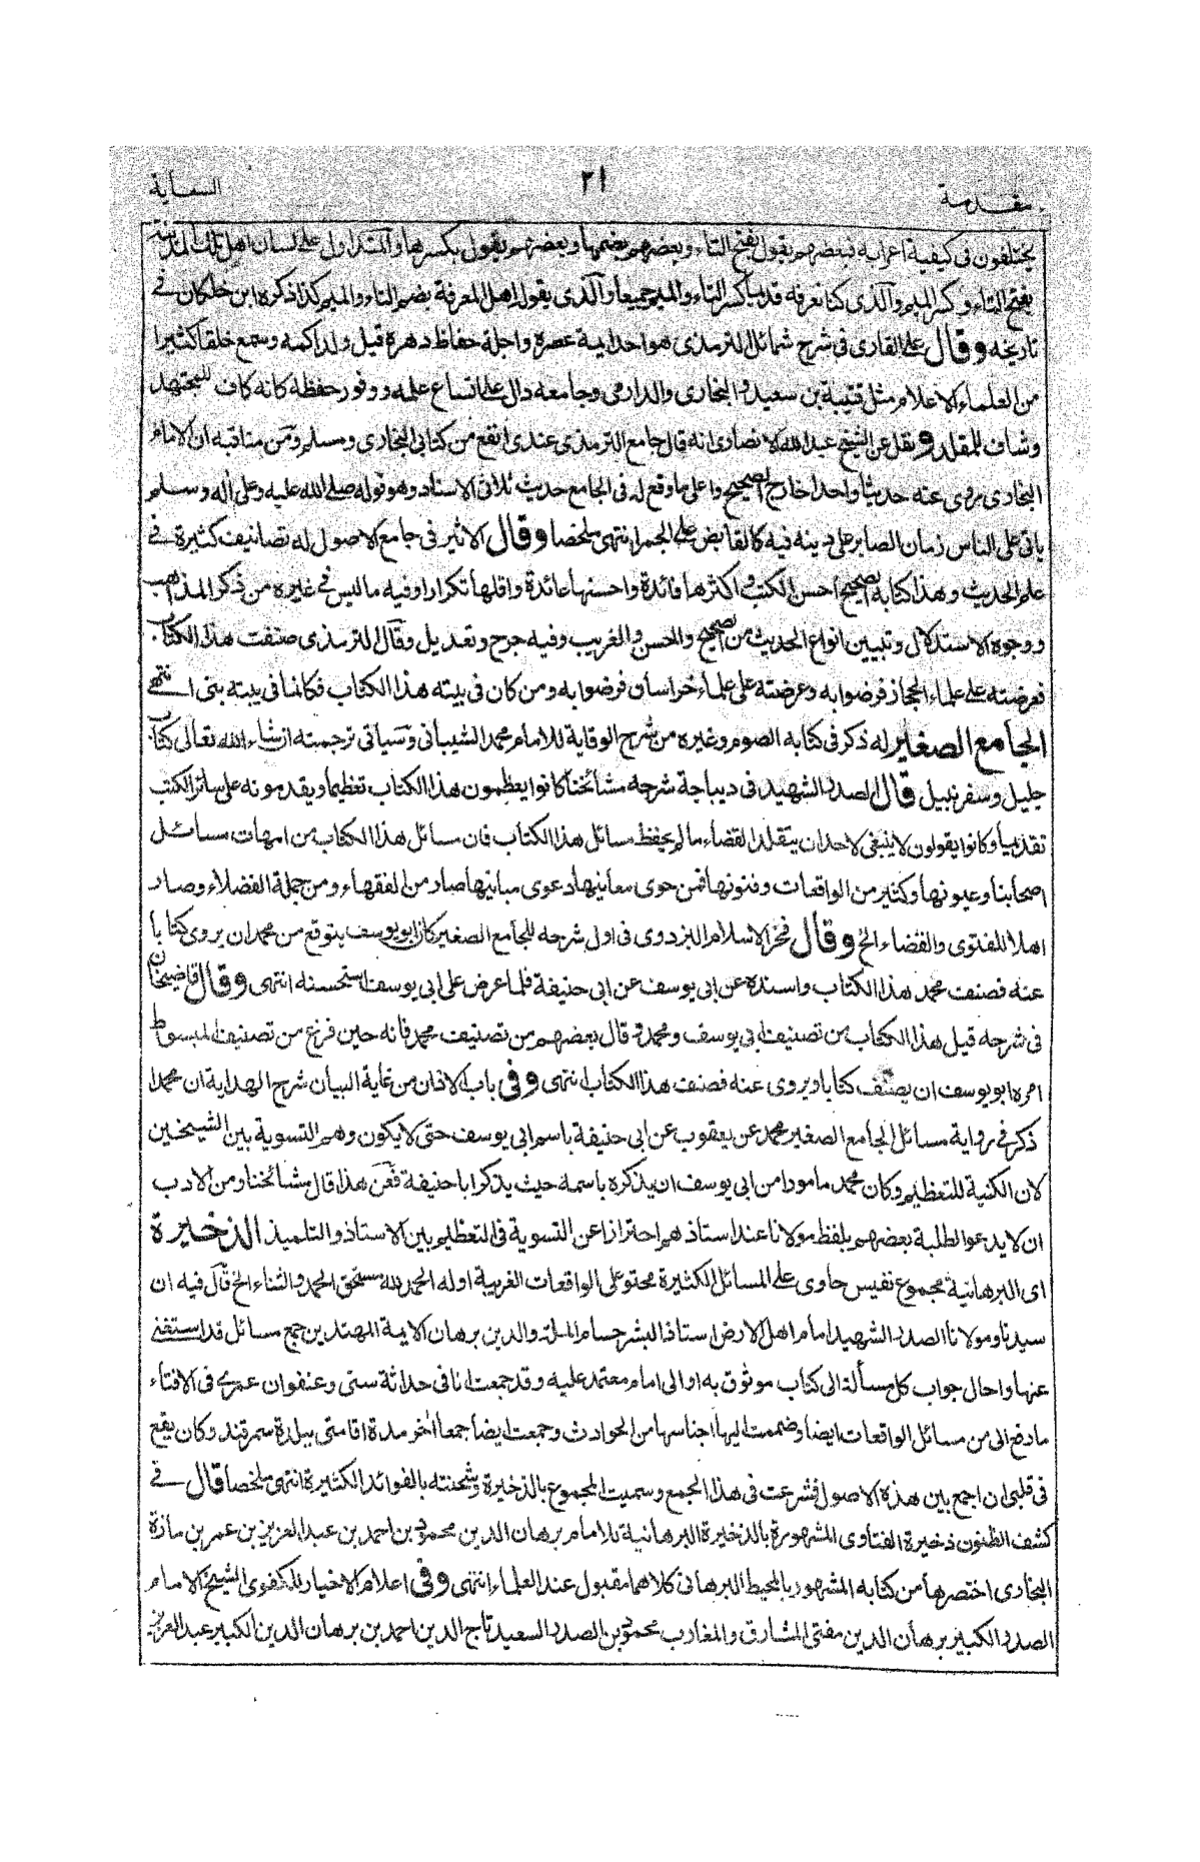 مقدمة
٢١
السعاية
يختلفون فى كيفية اعرابه فبعضهم يقول بفتح التاء وبعضهم بضمها وبعضهم يقول بكسرها والمتداول على لسان اهل تلك المدينة
بفتح التاء وكسر الميم والذى كنا نعرفه قديما كسر التاء والميم جميعا والذى يقوله اهل المعرفة بضم التاء والميم كذا ذكره ابن خلكان فى
تاريخه وقال على القارى فى شرح شمائل الترمذى هو احد ايمة عصره واجلة حفاظ دهره قيل ولد اكمه وسمع خلقا كثيرا
من العلماء الاعلام مثل قتيبة بن سعيد والبخارى والدارمى وجامعه دال على اتساع علمه ووفور حفظه كانه كاف للمجتهد
وشاف للمقلد ونقل عن الشيخ عبدالله الانصارى انه قال جامع الترمذى عندى انفع من كتابى البخارى ومسلم ومن مناقبه ان الامام
البخارى يروى عنه حديثا واحدا خارج الصحيح واعلى ما وقع له فى الجامع حديث ثلاثى الاسناد وهو قوله صلى الله عليه وعلى اله وسلم
ياتى على الناس زمان الصابر على دينه فيه كالقابض على الجمر انتهى ملخصا وقال الاثير فى جامع الاصول له تصانيف كثيرة فى
علم الحديث وهذا كتابه الصحيح احسن الكتب واكثرها فائدة واحسنها عائدة واقلها تكرارا وفيه ما ليس فى غيره من ذكر المذاهب
ووجوه الاستدلال وتبيين انواع الحديث من الصحيح والحسن والغريب وفيه جرح وتعديل وقال الترمذى صنفت هذا الكتاب
فعرضته على علماء الحجاز فرضوا به وعرضته على علماء خراسان فرضوا به ومن كان فى بيته هذا الكتاب فكانما فى بيته نبى انتهى
الجامع الصغير له ذكر فى كتابه الصوم وغيره من شرح الوقاية للامام محمد الشيبانى وسياتى ترجمته ان شاء الله تعالى كتاب
جليل وسفر نبيل قال الصدر الشهيد فى ديباجة شرحه مشائخنا كانوا يعظمون هذا الكتاب تعظيما ويقدمونه على سائر الكتب
تقديما وكانوا يقولون لا ينبغى لاحد ان يتقلد القضاء ما لم يحفظ مسائل هذا الكتاب فان مسائل هذا الكتاب من امهات مسائل
اصحابنا وعيونها وكثير من الواقعات وفنونها فمن حوى معانيها دعوى مبانيها صار من الفقهاء ومن جملة الفضلاء وصار
اهلا للفتوى والقضاء الخ وقال فخر الاسلام البزدوى فى اول شرحه للجامع الصغير كان ابو يوسف يتوقع من محمد ان يروى كتابا
عنه فصنف محمد هذا الكتاب واسنده عن ابى يوسف عن ابى حنيفة فلما عرض على ابى يوسف استحسنه انتهى وقال قاضيخان
فى شرحه قيل هذا الكتاب من تصنيف ابى يوسف ومحمد وقال بعضهم من تصنيف محمد فانه حين فرغ من تصنيف المبسوط
امره ابو يوسف ان يصنف كتابا ويروى عنه فصنف هذا الكتاب انتهى وفى باب الاذان من غاية البيان شرح الهداية ان محمدا
ذكر فى رواية مسائل الجامع الصغير محمد عن يعقوب عن ابى حنيفة باسم ابى يوسف حتى لا يكون وهم التسوية بين الشيخين
لان الكنية للتعظيم وكان محمد مامورا من ابى يوسف ان يذكره باسمه حيث يذكر ابا حنيفة فعن هذا قال مشائخنا ومن الادب
ان لا يدعو الطلبة بعضهم بلفظ مولانا عند استاذهم احترازا عن التسوية فى التعظيم بين الاستاذ والتلميذ الذخيرة
اى البرهانية مجموع نفيس حاوى على المسائل الكثيرة محتو على الواقعات الغريبة اوله الحمد لله مستحق الحمد والثناء الخ قال فيه ان
سيدنا ومولانا الصدر الشهيد امام اهل الارض استاذ البشر حسام الملة والدين برهان الايمة المهتدين جمع مسائل قد استفتى
عنها واحال جواب كل مسألة الى كتاب موثوق به او الى امام معتمد عليه وقد جمعت انا فى حداثة سنى وعنفوان عمرى فى الافتاء
ما دفع الى من مسائل الواقعات ايضا وضممت اليها اجناسها من الحوادث وجمعت ايضا جمعا اخر مدة اقامتى ببلدة سمرقند وكان يقع
فى قلبى ان اجمع بين هذه الاصول فشرعت فى هذا الجمع وسميت المجموع بالذخيرة وشحنته بالفوائد الكثيرة انتهى ملخصا قال فى
كشف الظنون ذخيرة الفتاوى المشهورة بالذخيرة البرهانية للامام برهان الدين محمود بن احمد بن عبد العزيز بن عمر بن مازة
البخارى اختصرها من كتابه المشهور بالمحيط البرهانى كلاهما مقبول عند العلماء انتهى وفى اعلام الاخيار للكفوى الشيخ الامام
الصدر الكبير برهان الدين مفتى المشارق والمغارب محمود بن الصدر السعيد تاج الدين احمد بن برهان الدين الكبير عبد العزيز